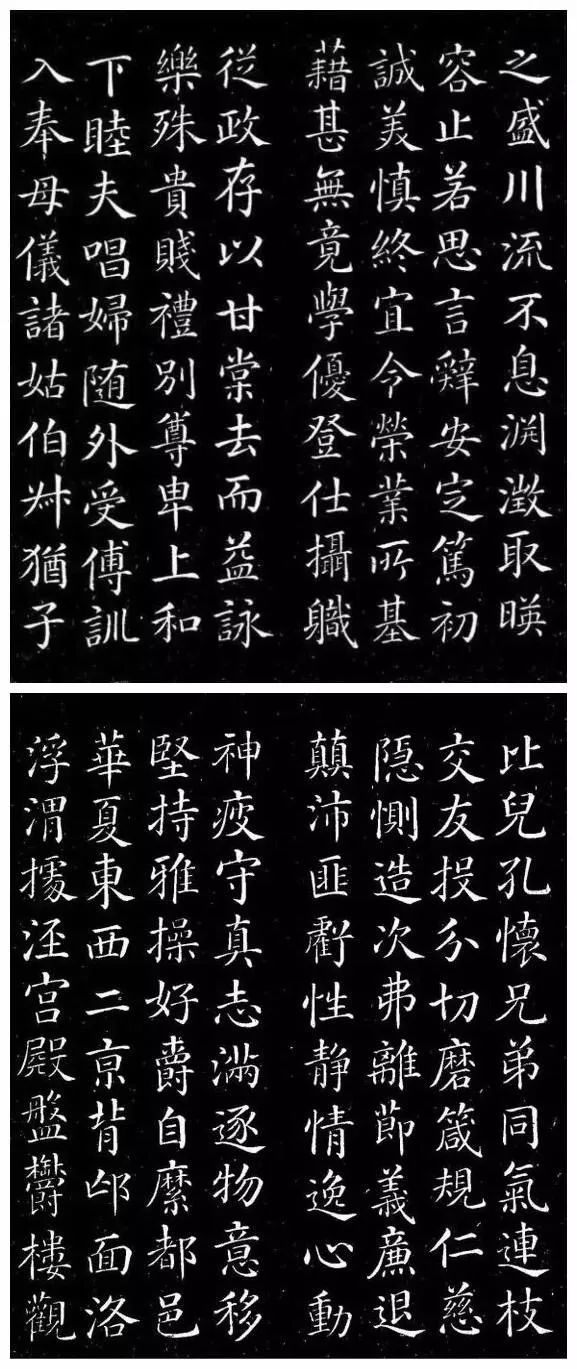 之盛川流不息渊澂取暎
容止若思言辭安定篤初
誠美慎終宜令榮業所基
藉甚無竟學優登仕攝職
從政存以甘棠去而益詠
樂殊貴賤禮別尊卑上和
下睦夫唱婦随外受傅訓
入奉母儀諸姑伯叔猶子
比兒孔懷兄弟同氣連枝
交友投分切磨箴規仁慈
隐惻造次弗離節義廉退
顛沛匪虧性静情逸心動
神疲守真志滿逐物意移
堅持雅操好爵自縻都邑
華夏東西二京背邙面洛
浮渭據泾宫殿盤鬱樓觀